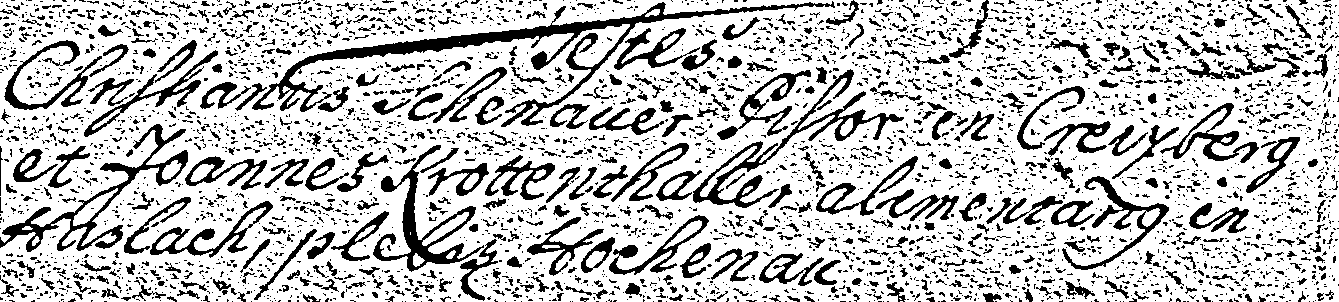 Testes.
Christianus Schenauer Pistor in Creuxberg.
et Joannes Krottenthaller alimentarig in
Haslach, plebis Hochenau.